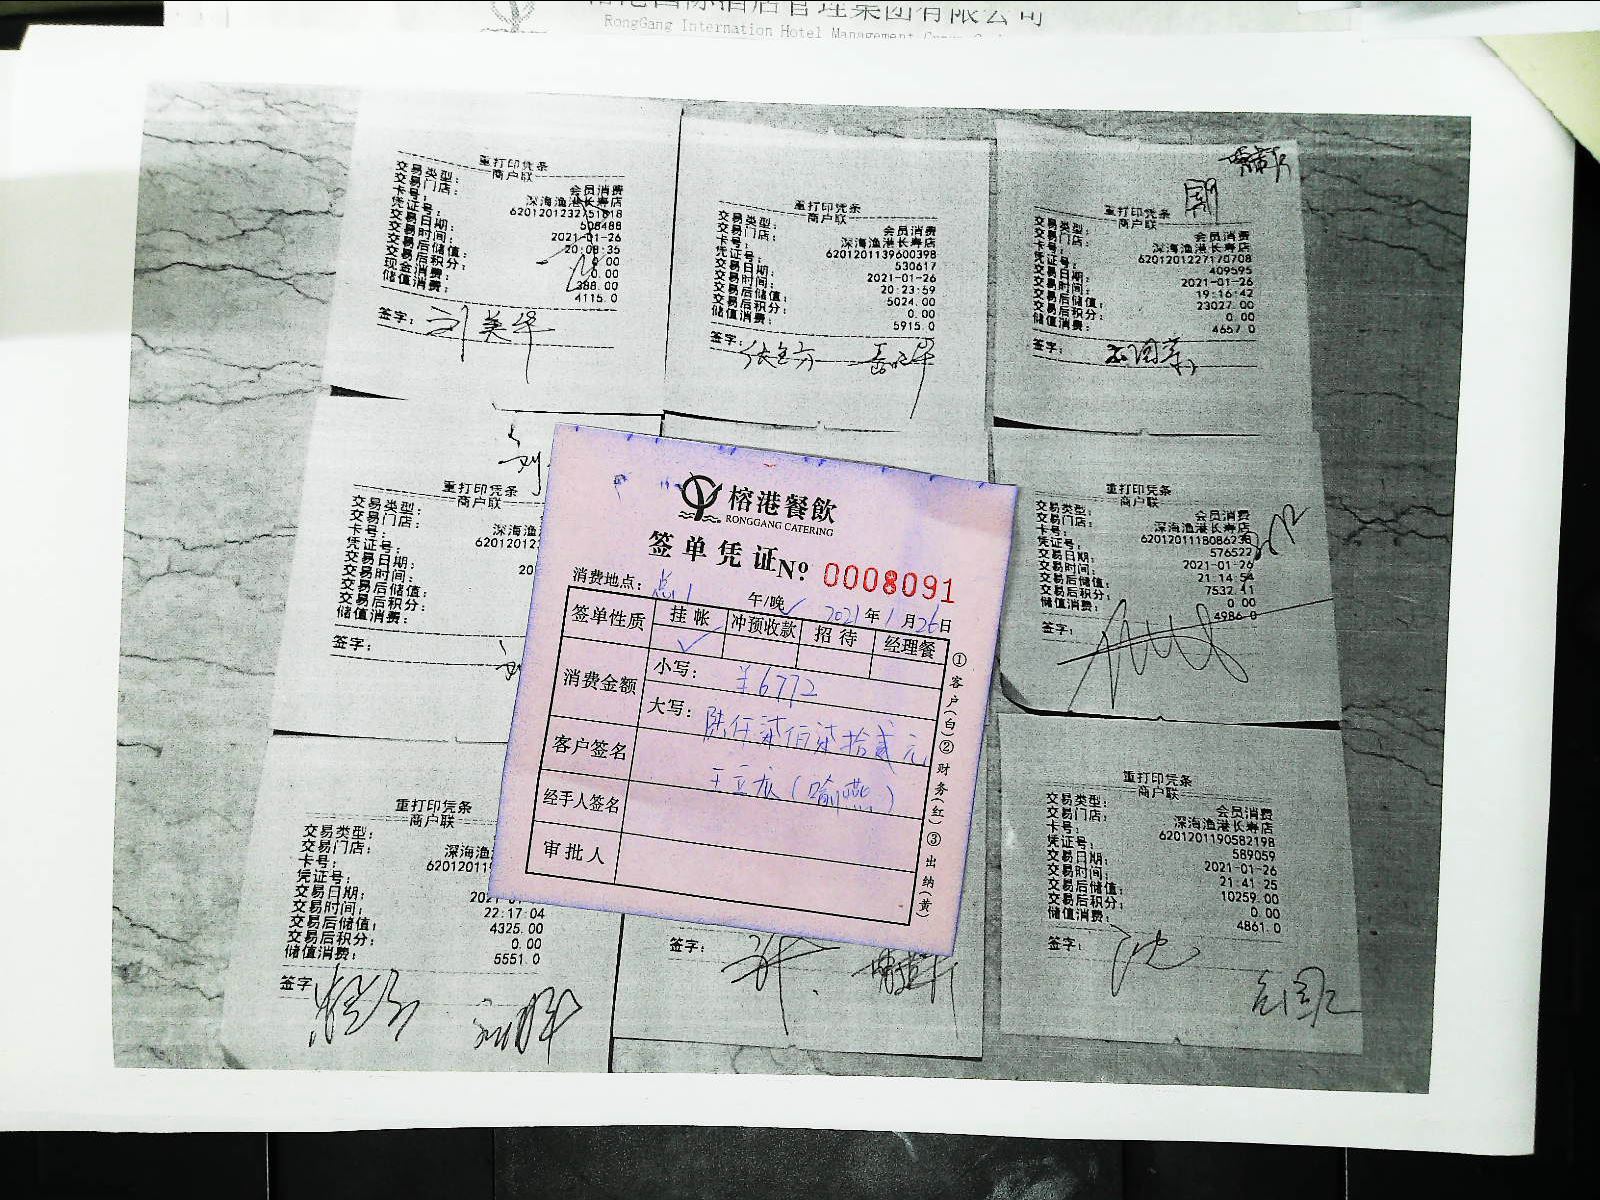 RongGang Internation Hotel Management
重打印凭条
商户联
交易类型： 会员消费
交易门店： 深海渔港长寿店
卡号： 6201201232751618
凭证号： 508488
交易日期： 2021-01-26
交易时间： 20:08:35
交易后储值： 0.00
交易后积分： 0.00
现金消费： 388.00
储值消费： 4115.0
签字： 刘美华
重打印凭条
商户联
交易类型： 会员消费
交易门店： 深海渔港长寿店
卡号： 6201201139600398
凭证号： 530617
交易日期： 2021-01-26
交易时间： 20:23:59
交易后储值： 5024.00
交易后积分： 0.00
储值消费： 5915.0
签字：
重打印凭条
商户联
交易类型： 会员消费
交易门店： 深海渔港长寿店
卡号： 6201201227170708
凭证号： 409595
交易日期： 2021-01-26
交易时间： 19:16:42
交易后储值： 23027.00
交易后积分： 0.00
储值消费： 4657.0
签字：
重打印凭条
商户联
交易类型：
交易门店： 深海渔
卡号： 62012012
凭证号：
交易日期：
交易时间： 20
交易后储值：
交易后积分：
储值消费：
签字：
榕港餐飲
RONGGANG CATERING
签单凭证 No. 0008091
消费地点： 总1 午/晚✓ 2021年1月26日
签单性质 挂帐 冲预收款 招待 经理餐
✓
消费金额 小写： ¥6772
大写： 陆仟柒佰柒拾贰元
客户签名 王立龙（喻燕）
经手人签名
审批人
①客户(白)②财务(红)③出纳(黄)
重打印凭条
商户联
交易类型： 会员消费
交易门店： 深海渔港长寿店
卡号： 6201201118086238
凭证号： 576522
交易日期： 2021-01-26
交易时间： 21:14:54
交易后储值： 7532.41
交易后积分： 0.00
储值消费： 4986.0
签字：
重打印凭条
商户联
交易类型：
交易门店： 深海渔
卡号： 62012011
凭证号：
交易日期： 202
交易时间： 22:17:04
交易后储值： 4325.00
交易后积分： 0.00
储值消费： 5551.0
签字
签字：
重打印凭条
商户联
交易类型： 会员消费
交易门店： 深海渔港长寿店
卡号： 6201201190582198
凭证号： 589059
交易日期： 2021-01-26
交易时间： 21:41:25
交易后储值： 10259.00
交易后积分： 0.00
储值消费： 4861.0
签字： 沈